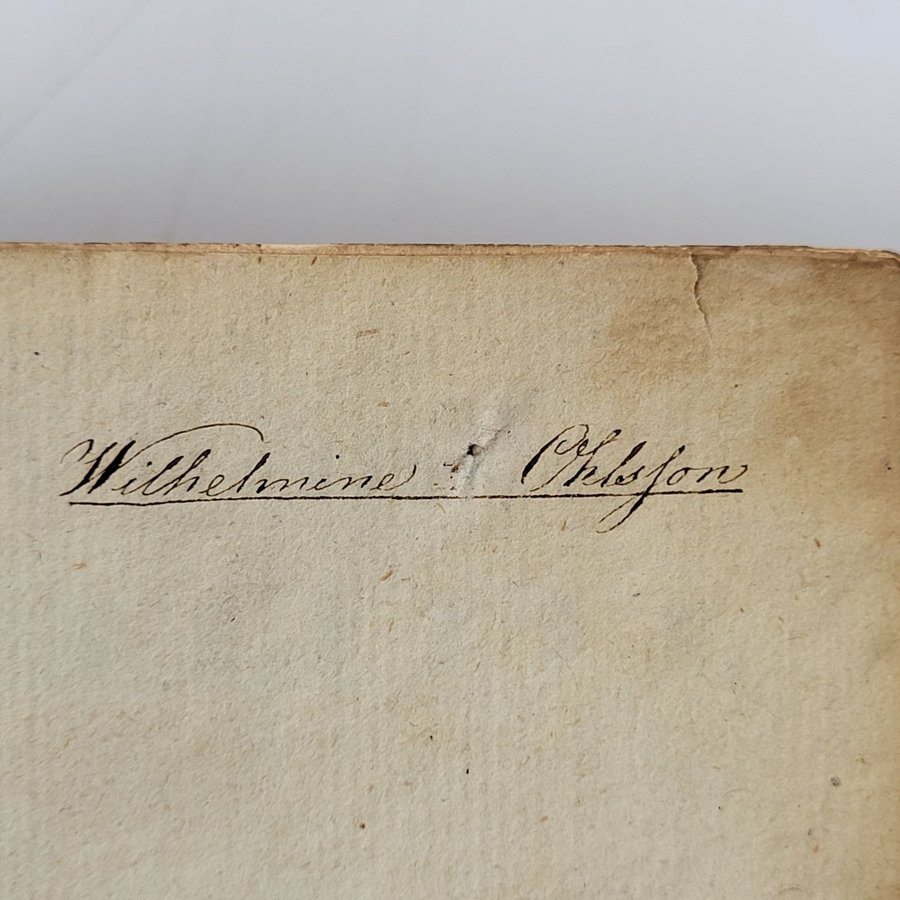 Wilhelmine Ohlsſon